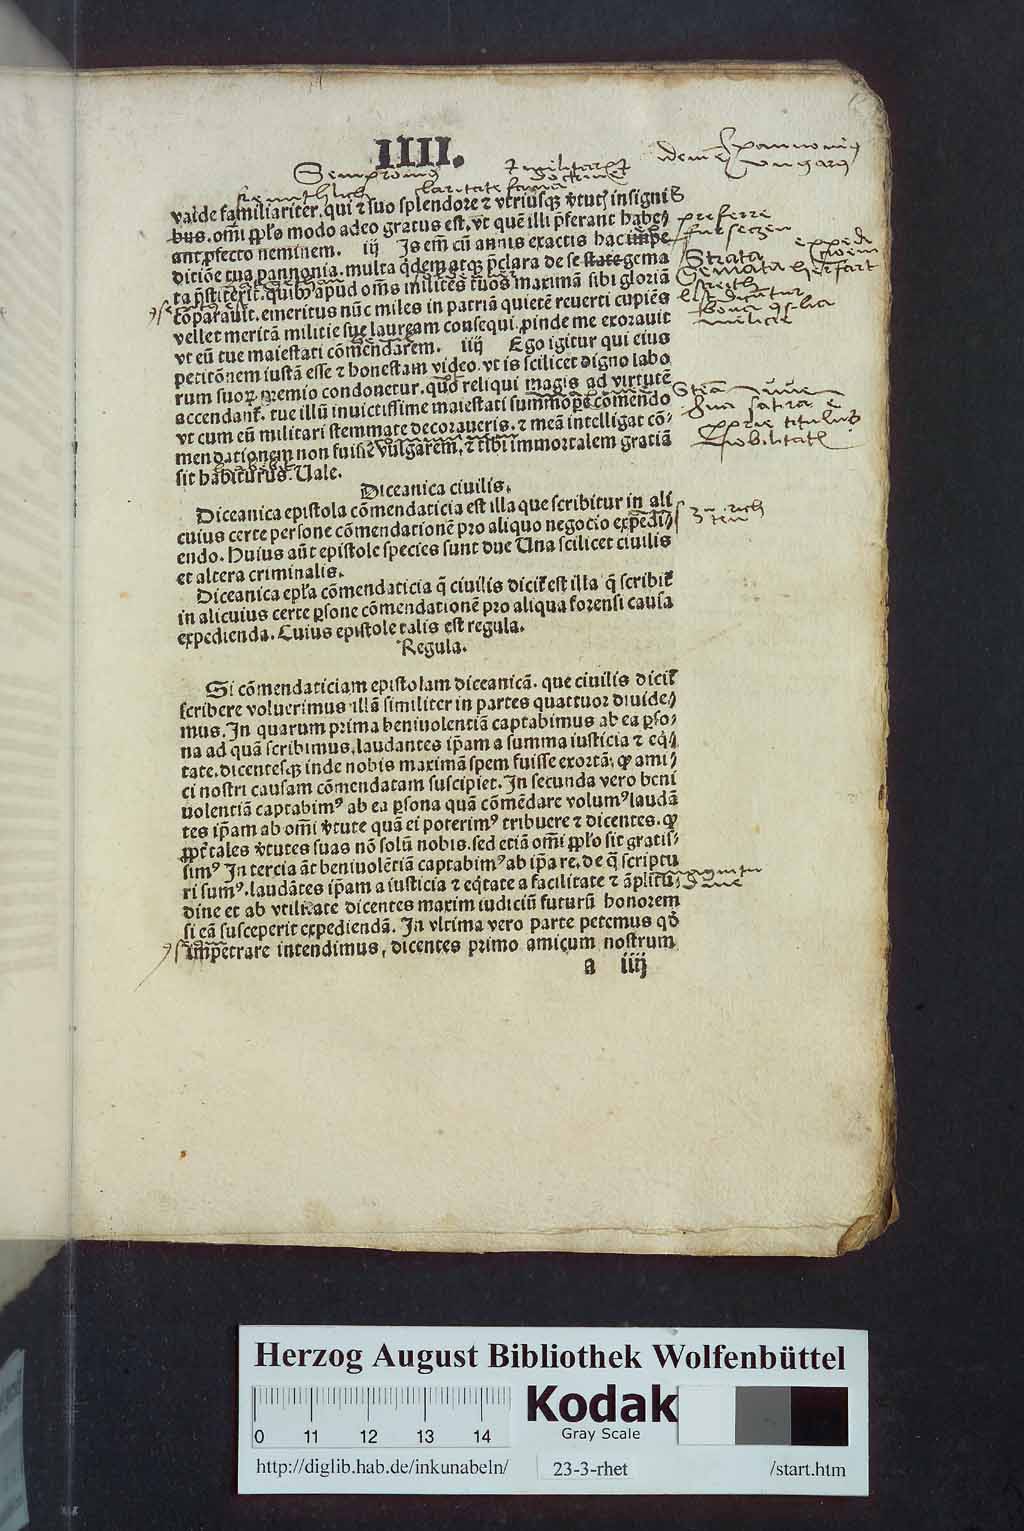 IIII.
Sempronius
valde familiariter. qui ⁊ suo splendore ⁊ vtriusqꝫ v̓tutꝭ insigni
bus. om̄i pp̄ls modo adeo gratus est. vt quē illi p̄ferant habeā
ant ꝓfecto neminem. iij Is em̄ cū annis exactis hac impe
ditiōe tua pannonia. multa q̄dem atqꝫ p̄clara de se state gema
ta p̄stiterit. quibꝰ apud oms̄ milites tuos maximā sibi gloriā
cōparauit. emeritus nūc miles in patriā quietē reuerti cupiēs
vellet meritā militie sue lauream consequi. ꝓinde me exorauit
vt eū tue maiestati cōmendarem. iiij Ego igitur qui eius
petitōnem iustā esse ⁊ honestam video. vt is scilicet digno labo
rum suoꝝ premio condonetur. quo reliqui magis ad virtutē
accendanť. tue illū inuictissime maiestati summope cōmendo
vt cum eū militari stemmate decoraueris. ⁊ meā intelligat cō-
mendationem non fuisse vulgarem, ⁊ tibi immortalem gratiā
sit habiturus. Uale.
Diceanica ciuilis.
Diceanica epistola cōmendaticia est illa que scribitur in ali
cuius certe persone cōmendationē pro aliquo negocio expedi⸗
endo. Huius aūt epistole species sunt due Una scilicet ciuilis
et altera criminalis.
Diceanica ep̄la cōmendaticia q̄ ciuilis diciť est illa q̄ scribiť
in alicuius certe ꝑsone cōmendationē pro aliqua forensi causa
expedienda. Cuius epistole talis est regula.
Regula.
Si cōmendaticiam epistolam diceanicā. que ciuilis diciť
scribere voluerimus illā similiter in partes quattuor diuide⸗
mus. In quarum prima beniuolentiā captabimus ab ea ꝑso⸗
na ad quā scribimus, laudantes ip̄am a summa iusticia ⁊ eq̄⸗
tate. dicentesqꝫ inde nobis maximā spem fuisse exortā, ꝙ ami⸗
ci nostri causam cōmendatam suscipiet. In secunda vero beni
uolentiā captabimꝰ ab ea ꝑsona quā cōmēdare volumꝰ laudā
tes ip̄am ab om̄i v̓tute quā ei poterimꝰ tribuere ⁊ dicentes. ꝙ
ꝓpť tales v̓tutes suas nō solū nobis. sed etiā om̄i pp̄lo sit gratis⸗
simꝰ In tercia āt beniuolētiā captabimꝰ ab ip̄a re. de q̄ scriptu
ri sumꝰ. laudātes ip̄am a iusticia ⁊ eq̄tate a facilitate ⁊ āplitu⸗
dine et ab vtilitate dicentes maxim iudiciū futurū honorem
si eā susceperit expediendā. In vltima vero parte petemus qd̓
impetrare intendimus, dicentes primo amicum nostrum
a iiij
preferre
Strata
Herzog August Bibliothek Wolfenbüttel
Kodak
Gray Scale
0 11 12 13 14
http://diglib.hab.de/inkunabeln/ 23-3-rhet /start.htm